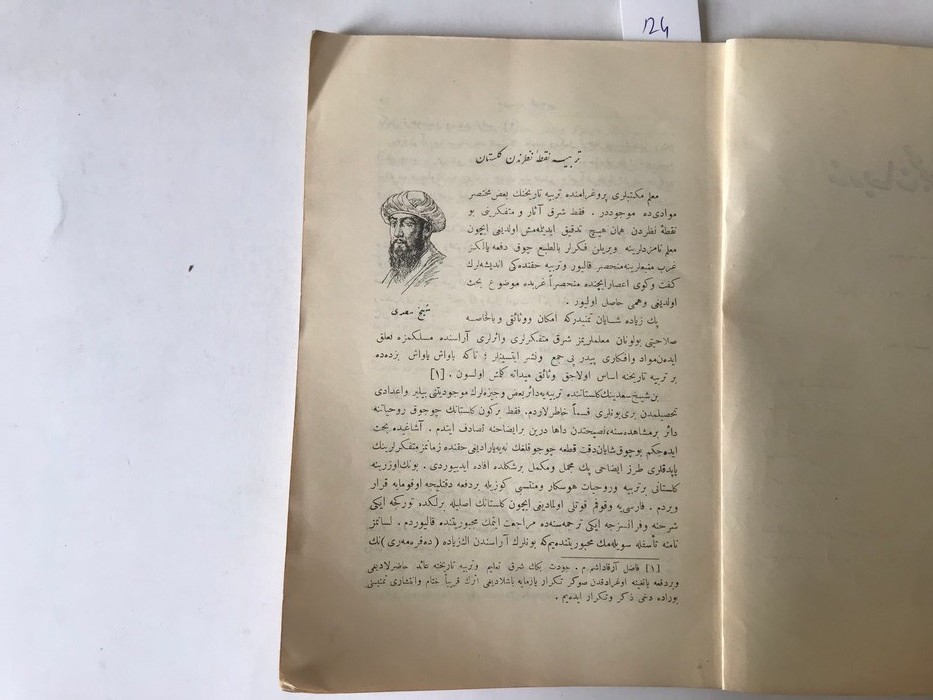 124
تربیه نقطهٔ نظرندن گلستان
معلم مکتبلری پروغرامنده تربیه تاریخنك بعض مختصر
موادی ده موجوددر . فقط شرق آثار و متفکرینی بو
نقطهٔ نظردن همان هیچ تدقیق ایدیله‌مش اولدیغی ایچون
معلم نامزدلرینه ویریلن فکرلر بالطبع چوق دفعه یالکز
غرب منبعلرینه منحصر قالیور وتربیه حقنده‌کی اندیشه‌لرك
کفت وکوی اعصار ایچنده منحصراً غربده موضوع بحث
اولدیغی وهمی حاصل اولیور .
شیخ سعدی
پك زیاده شایان تمنیدرکه امکان ووثائقی وبالخاصه
صلاحیتی بولونان معلملریمز شرق متفکرلری واثرلری آراسنده مسلکمزه تعلق
ایده‌ن مواد وافکاری پیدر پی جمع ونشر ایتسینلر ؛ تاکه یاواش یاواش بزده‌ده
بر تربیه تاریخنه اساس اولاجق وثائق میدانه کلمش اولسون . [۱]
بن شیخ سعدینك گلستاننده تربیه‌یه دائر بعض وجیزه‌لرك موجودیتنی بیلیر واعدادی
تحصیلمدن بری بونلری قسماً خاطرلاردم. فقط برکون گلستانك چوجوق روحیاتنه
دائر بر مشاهده‌سنه، نصیحتندن داها درین بر ایضاحنه تصادف ایتدم . آشاغیده بحث
ایده‌جکم بو چوق شایان دقت قطعه چوجوقلغك نه‌یه یارادیغی حقنده زمانمز متفکرلرینك
یاپدقلری طرز ایضاحی پك مجمل ومکمل برشکلده افاده ایدییوردی . بونك اوزرینه
گلستانی برتربیه وروحیات هوسکار ومنتسبی کوزیله بردفعه دقتلیجه اوقومایه قرار
ویردم . فارسی‌یه وقوفم قوتلی اولمادیغی ایچون گلستانك اصلیله برلکده تورکجه ایکی
شرحنه وفرانسزجه ایکی ترجمه‌سنه‌ده مراجعت ایتمك مجبوریتنده قالیوردم . لسانمز
نامنه تأسفله سویله‌مك مجبوریتنده‌یم‌که بونلرك آراسندن اك زیاده (ده‌فره‌مه‌ری) نك
[۱] فاضل آرقاداشم م . جودت بكك شرق تعلیم وتربیه تاریخنه عائد حاضرلادیغی
وبردفعه یانغینه اوغرادقدن صوکر تکرار یازمایه باشلادیغی اثرك قریباً ختام وانتشاری تمنیسنی
بوراده دخی ذکر وتکرار ایده‌یم .